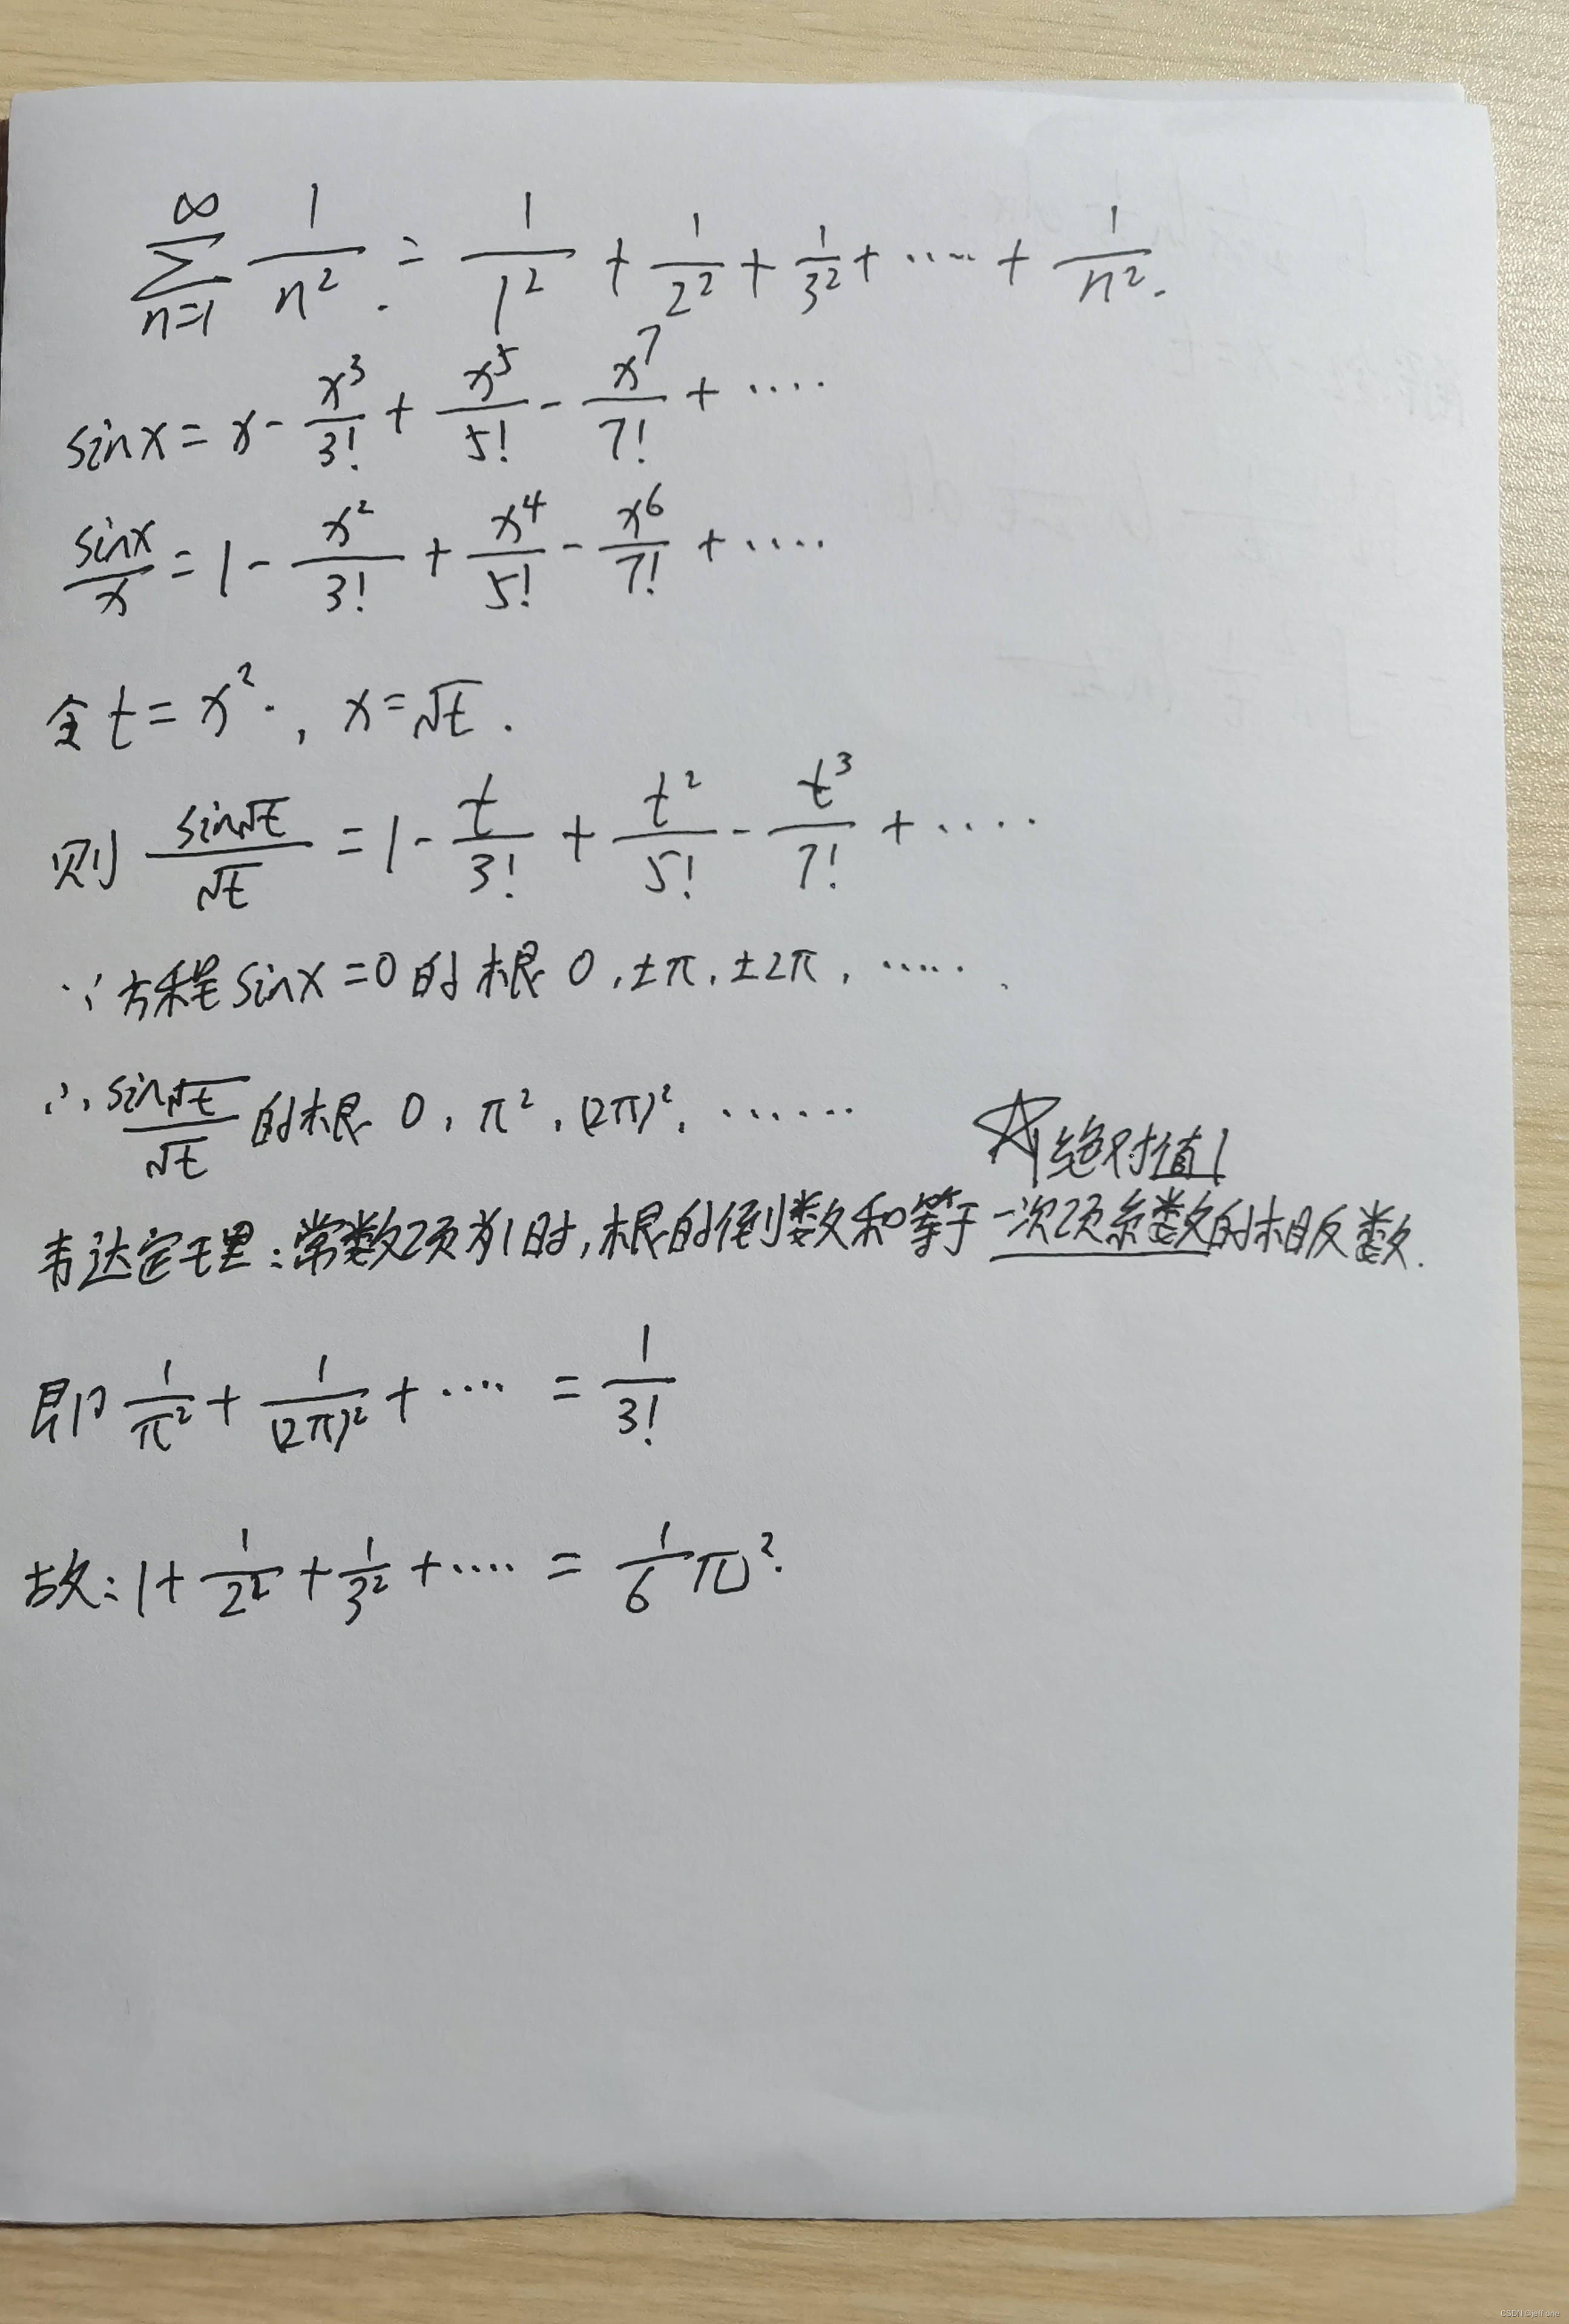 ∑_{n=1}^{∞} 1/n². = 1/1² + 1/2² + 1/3² + ····· + 1/n².
sinx = x - x³/3! + x⁵/5! - x⁷/7! + ····
sinx/x = 1 - x²/3! + x⁴/5! - x⁶/7! + ····
令 t = x²·, x = √t .
则 sin√t/√t = 1 - t/3! + t²/5! - t³/7! + ····
∵方程 sinx = 0 的根 0 , ±π, ±2π, ·····.
∴ sin√t/√t 的根 0 , π² , (2π)², ······
☆绝对值
韦达定理:常数项为1时,根的倒数和等于一次项系数的相反数.
即 1/π² + 1/(2π)² + ···· = 1/3!
故: 1 + 1/2² + 1/3² + ···· = 1/6 π².
CSDN @jeff one